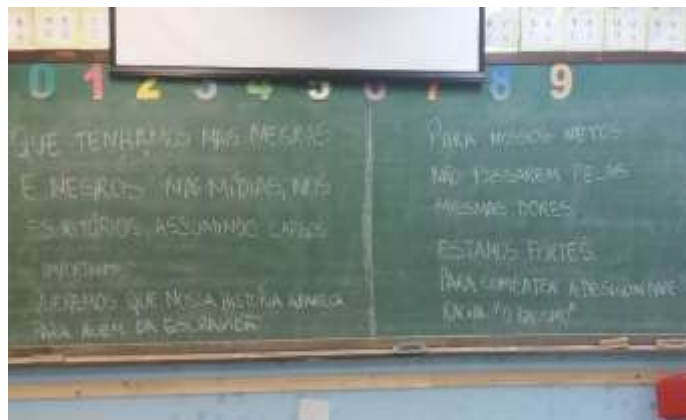 0 1 2 3 4 5 6 7 8 9
QUE TENHAMOS MAIS NEGRAS
E NEGROS NAS MÍDIAS, NOS
ESCRITÓRIOS, ASSUMINDO CARGOS
IMPORTANTES
QUEREMOS QUE NOSSA HISTÓRIA APAREÇA
PARA ALÉM DA ESCRAVIDÃO
PARA NOSSOS NETOS
NÃO PASSAREM PELAS
MESMAS DORES.
ESTAMOS FORTES
PARA COMBATER A DESIGUALDADE
RACIAL "O RACISMO"